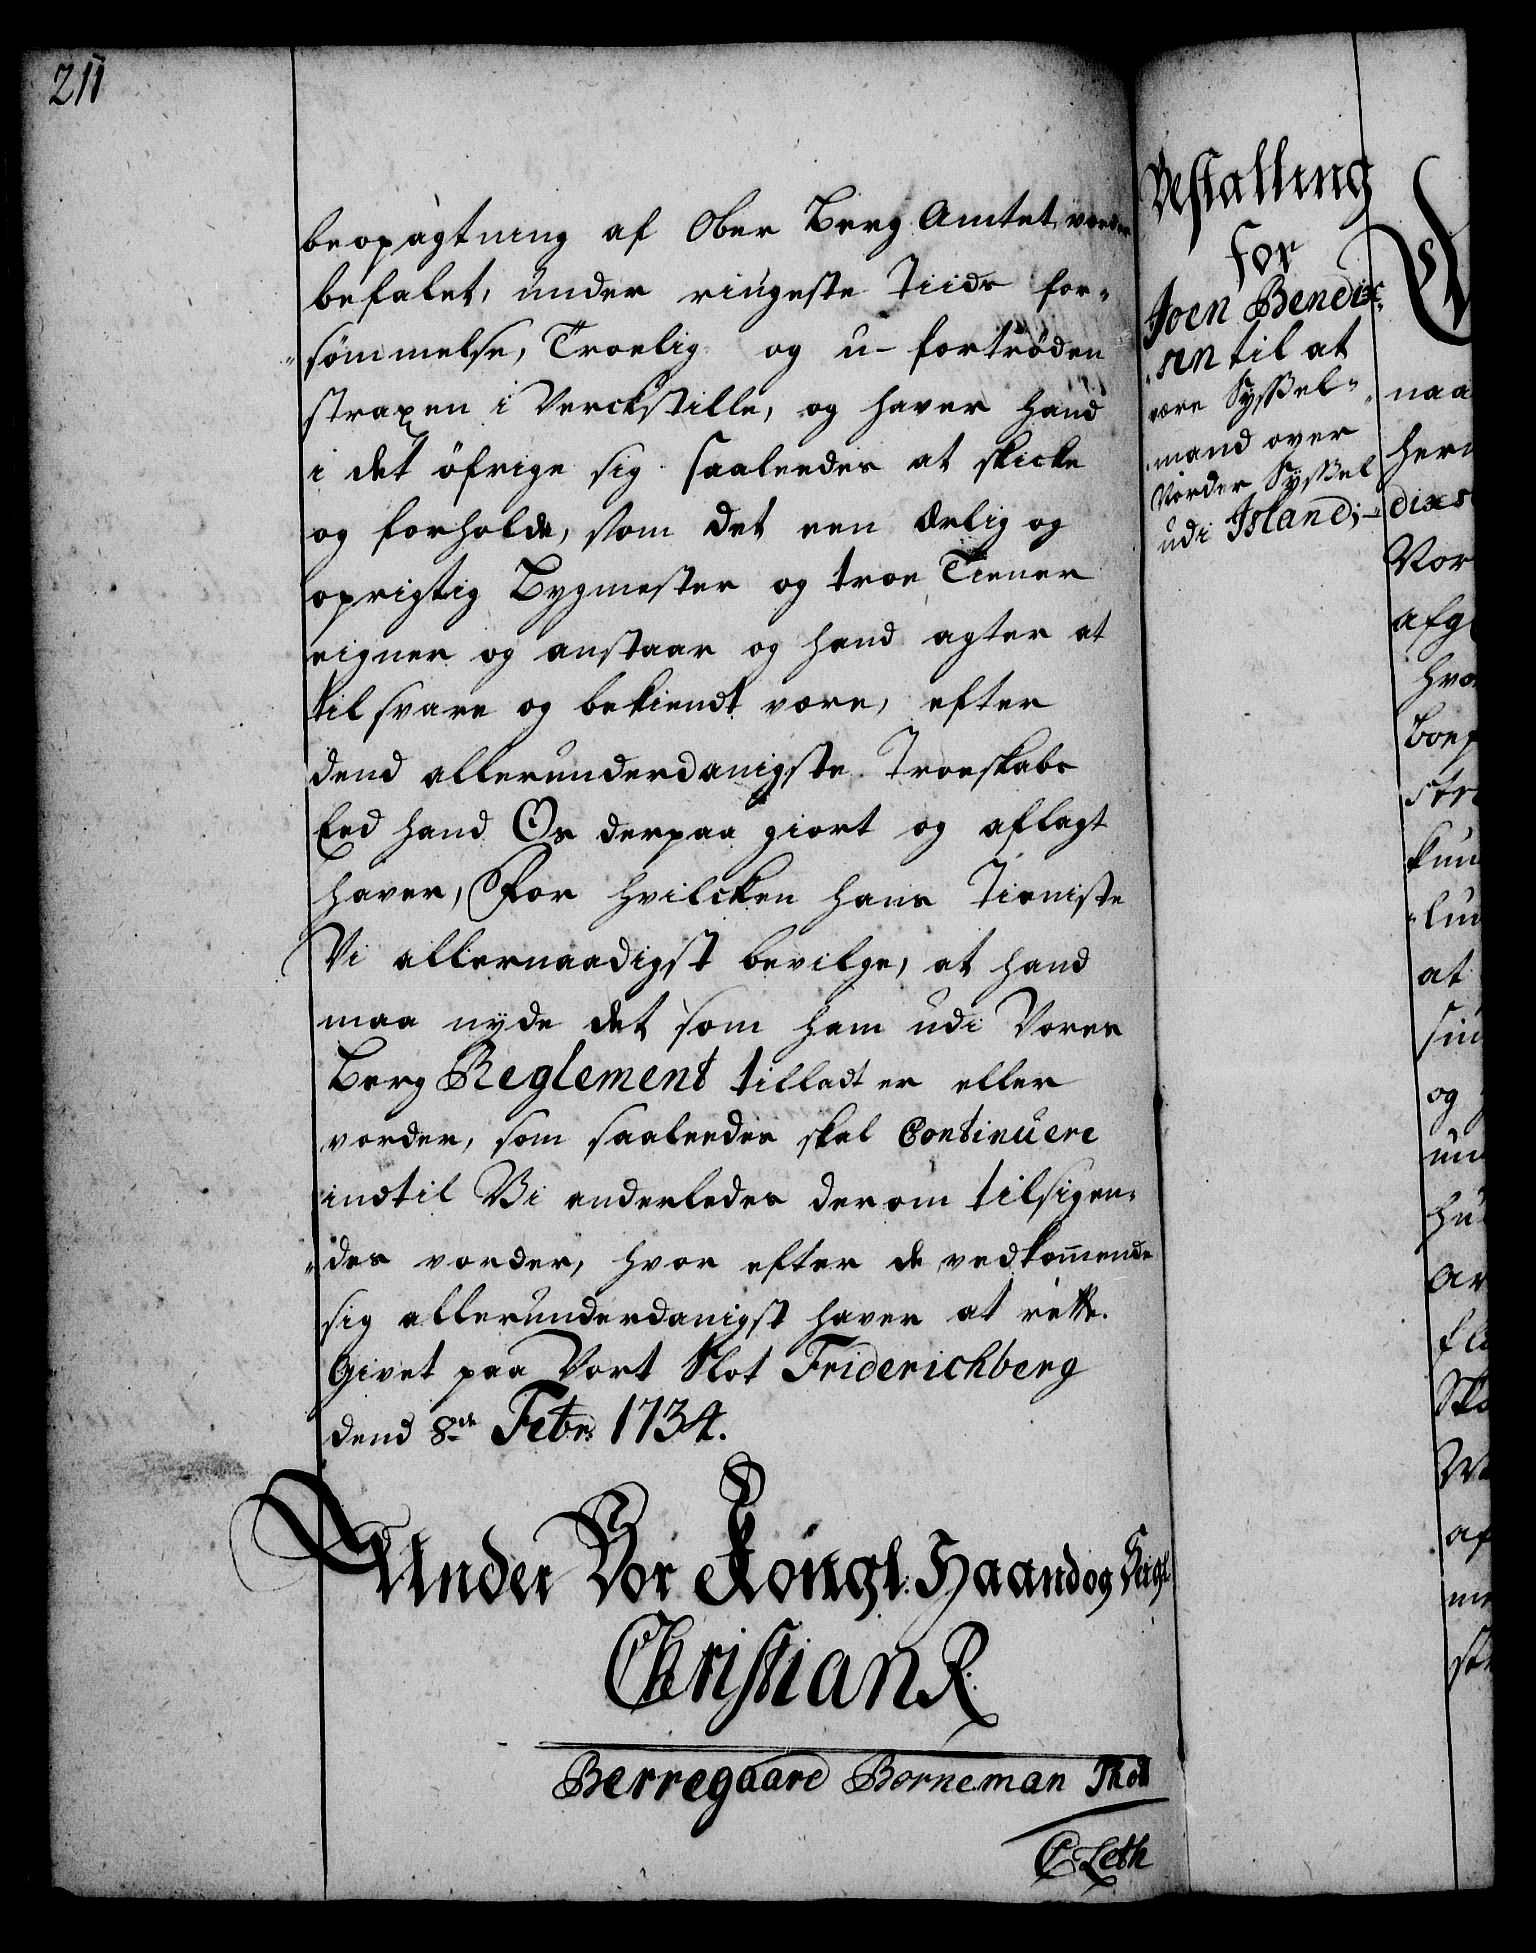 211
beopagtning af Ober Berg Amtet vorder
befalet, under ringeste Tiids for-
sømmelse, Troelig og u-fortrøden
straxen i Verckstille, og haver hand
i det öfrige sig saaleedes at skicke
og forholde, som det een ærlig og
oprigtig Bygmester og troe Tiener
eigner og anstaar og hand agter at
tilsvare og bekiendt være, efter
dend allerunderdanigste Troeskabs
Eed hand Os derpaa giort og aflagt
haver, For hvilcken hans Tieniste
Vi allernaadigst bevilge, at hand
maa nyde det som ham udi Vores
Berg Reglement tilladt er eller
vorder, som saaleedes skal Continuere
indtil Vi anderledes derom tilsigen-
des vorder, hvor efter de vedkommende
sig allerunderdanigst haver at rette.
Givet paa Vort Slot Friderichberg
dend 8de Febr: 1734.
Under Vor Kongl: Haand og Seigl
Christian R.
Berregaard Borneman Thott
C. Leth
Bestalling
for
Joen Bendix-
sen til at
være Syssel-
mand over
Norder Syssel
udi Island;
naa
her
dixs
Vor
afg
hvo
boep
str
kun
lun
at
sin
og
un
hu
ar
fl
Ska
af
me